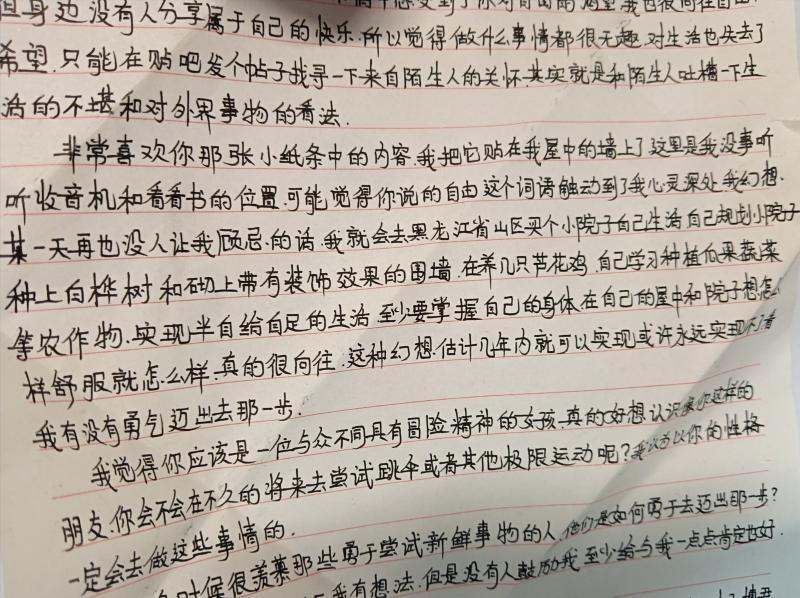 你对自由的渴望我也很向往自由.
但身边没有人分享属于自己的快乐.所以觉得做什么事情都很无趣.对生活也失去了
希望.只能在贴吧发个帖子找寻一下来自陌生人的关怀.其实就是和陌生人吐槽一下生
活的不堪和对外界事物的看法.
非常喜欢你那张小纸条中的内容.我把它贴在我屋中的墙上了这里是我没事听
听收音机和看看书的位置.可能觉得你说的自由这个词语触动到了我心灵深处我幻想.
某一天再也没人让我顾忌.的话.我就会去黑龙江省山区买个小院子自己生活自己规划小院子
种上白桦树和砌上带有装饰效果的围墙.在养几只芦花鸡.自己学习种植瓜果蔬菜
等农作物.实现半自给自足的生活至少要掌握自己的身体在自己的屋中和院子想怎么
样舒服就怎么样.真的很向往.这种幻想.估计几年内就可以实现或许永远实现不了看
我有没有勇气迈出去那一步.
我觉得你应该是一位与众不同具有冒险精神的女孩.真的好想认识像你这样的
朋友.你会不会在不久的将来去尝试跳伞或者其他极限运动呢?我以为以你的性格
一定会去做这些事情的.
时候很羡慕那些勇于尝试新鲜事物的人.他们是如何勇于去迈出那一步?
我有想法.但是没有人鼓励我至少给与我一点点肯定也好.